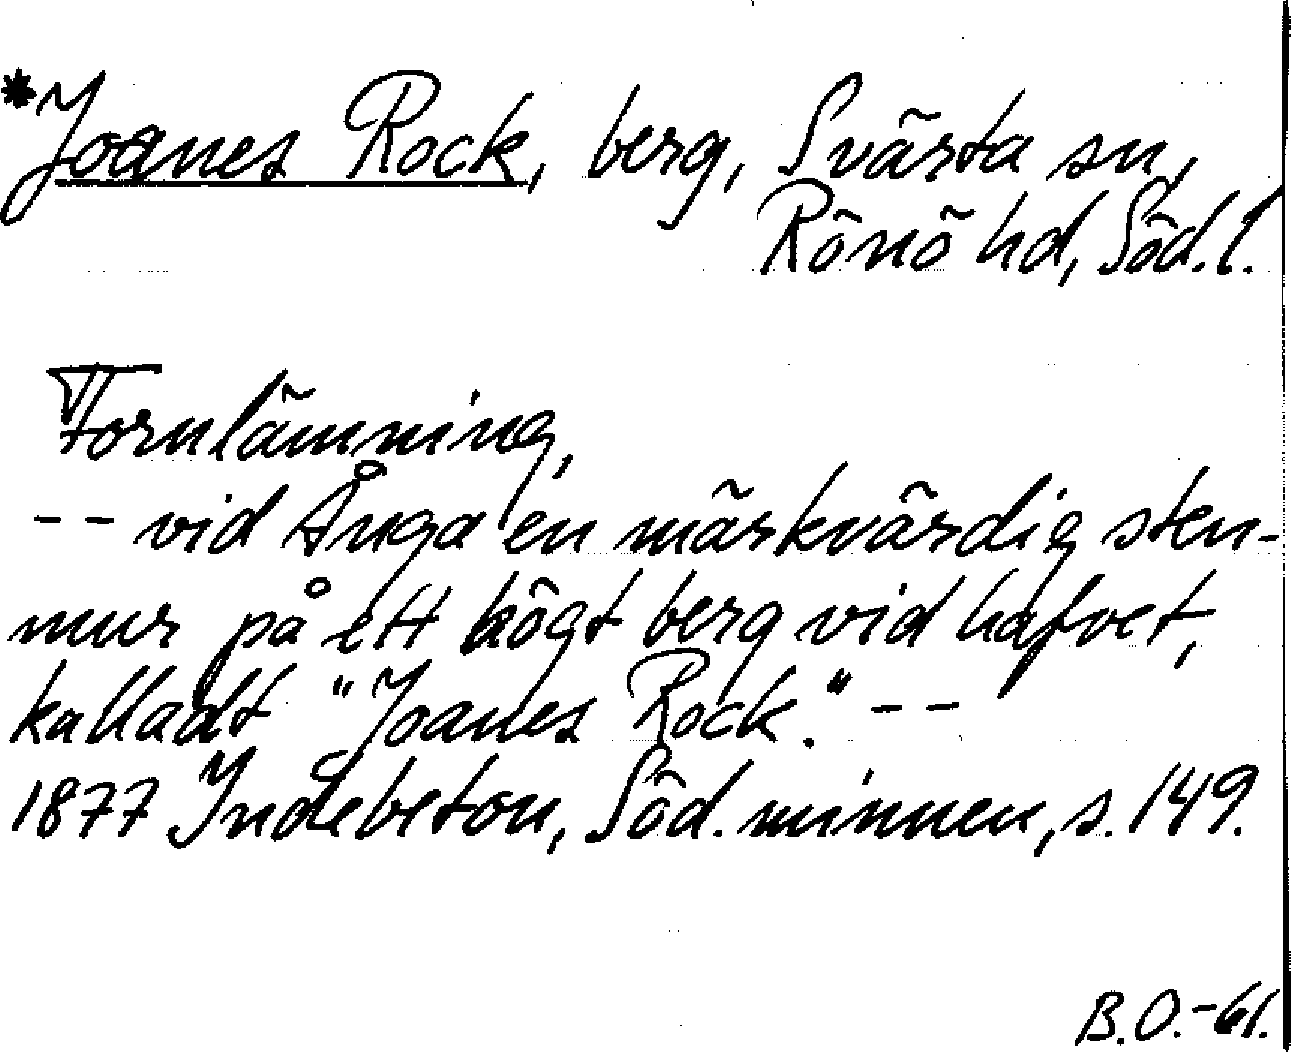 *Joanes Rock, berg, Svärta sn,
Rönö hd, Söd. l.
Fornlämning,
-- vid Ånga en märkvärdig sten-
mur på ett högt berg vid hafvet,
kalladt "Joanes Rock." --
1877 Indebetou, Söd. minnen, s. 149.
B.O.-61.